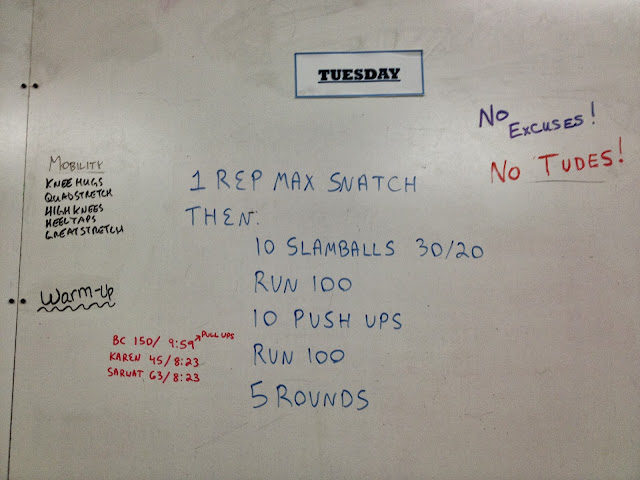 TUESDAY
No
Excuses!
No Tudes!
Mobility
KNEE HUGS
QUADSTRETCH
HIGH KNEES
HEEL TAPS
GREATSTRETCH
Warm-Up
1 REP MAX SNATCH
THEN:
10 SLAMBALLS 30/20
RUN 100
10 PUSH UPS
RUN 100
5 ROUNDS
BC 150/ 9:59 PULL UPS
KAREN 45/8:23
SARWAT 63/8:23